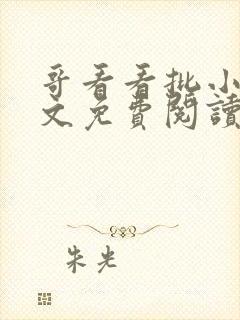 哥看看批小
文免費閱讀
朱光